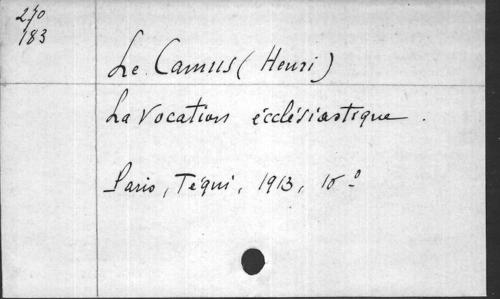 270
183
Le Camus (Henri)
La Vocation écclésiastique.
Paris, Téqui, 1913, 16º